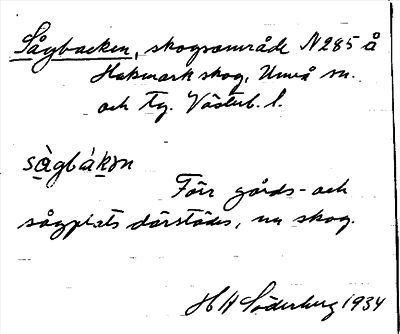 Sågbacken, skogsområde N 285 å
Hakmark skog, Umeå sn.
och tg. Västerb. l.
sàgbákən
Förr gårds- och
sågplats därstädes, nu skog.
H H Söderberg 1934